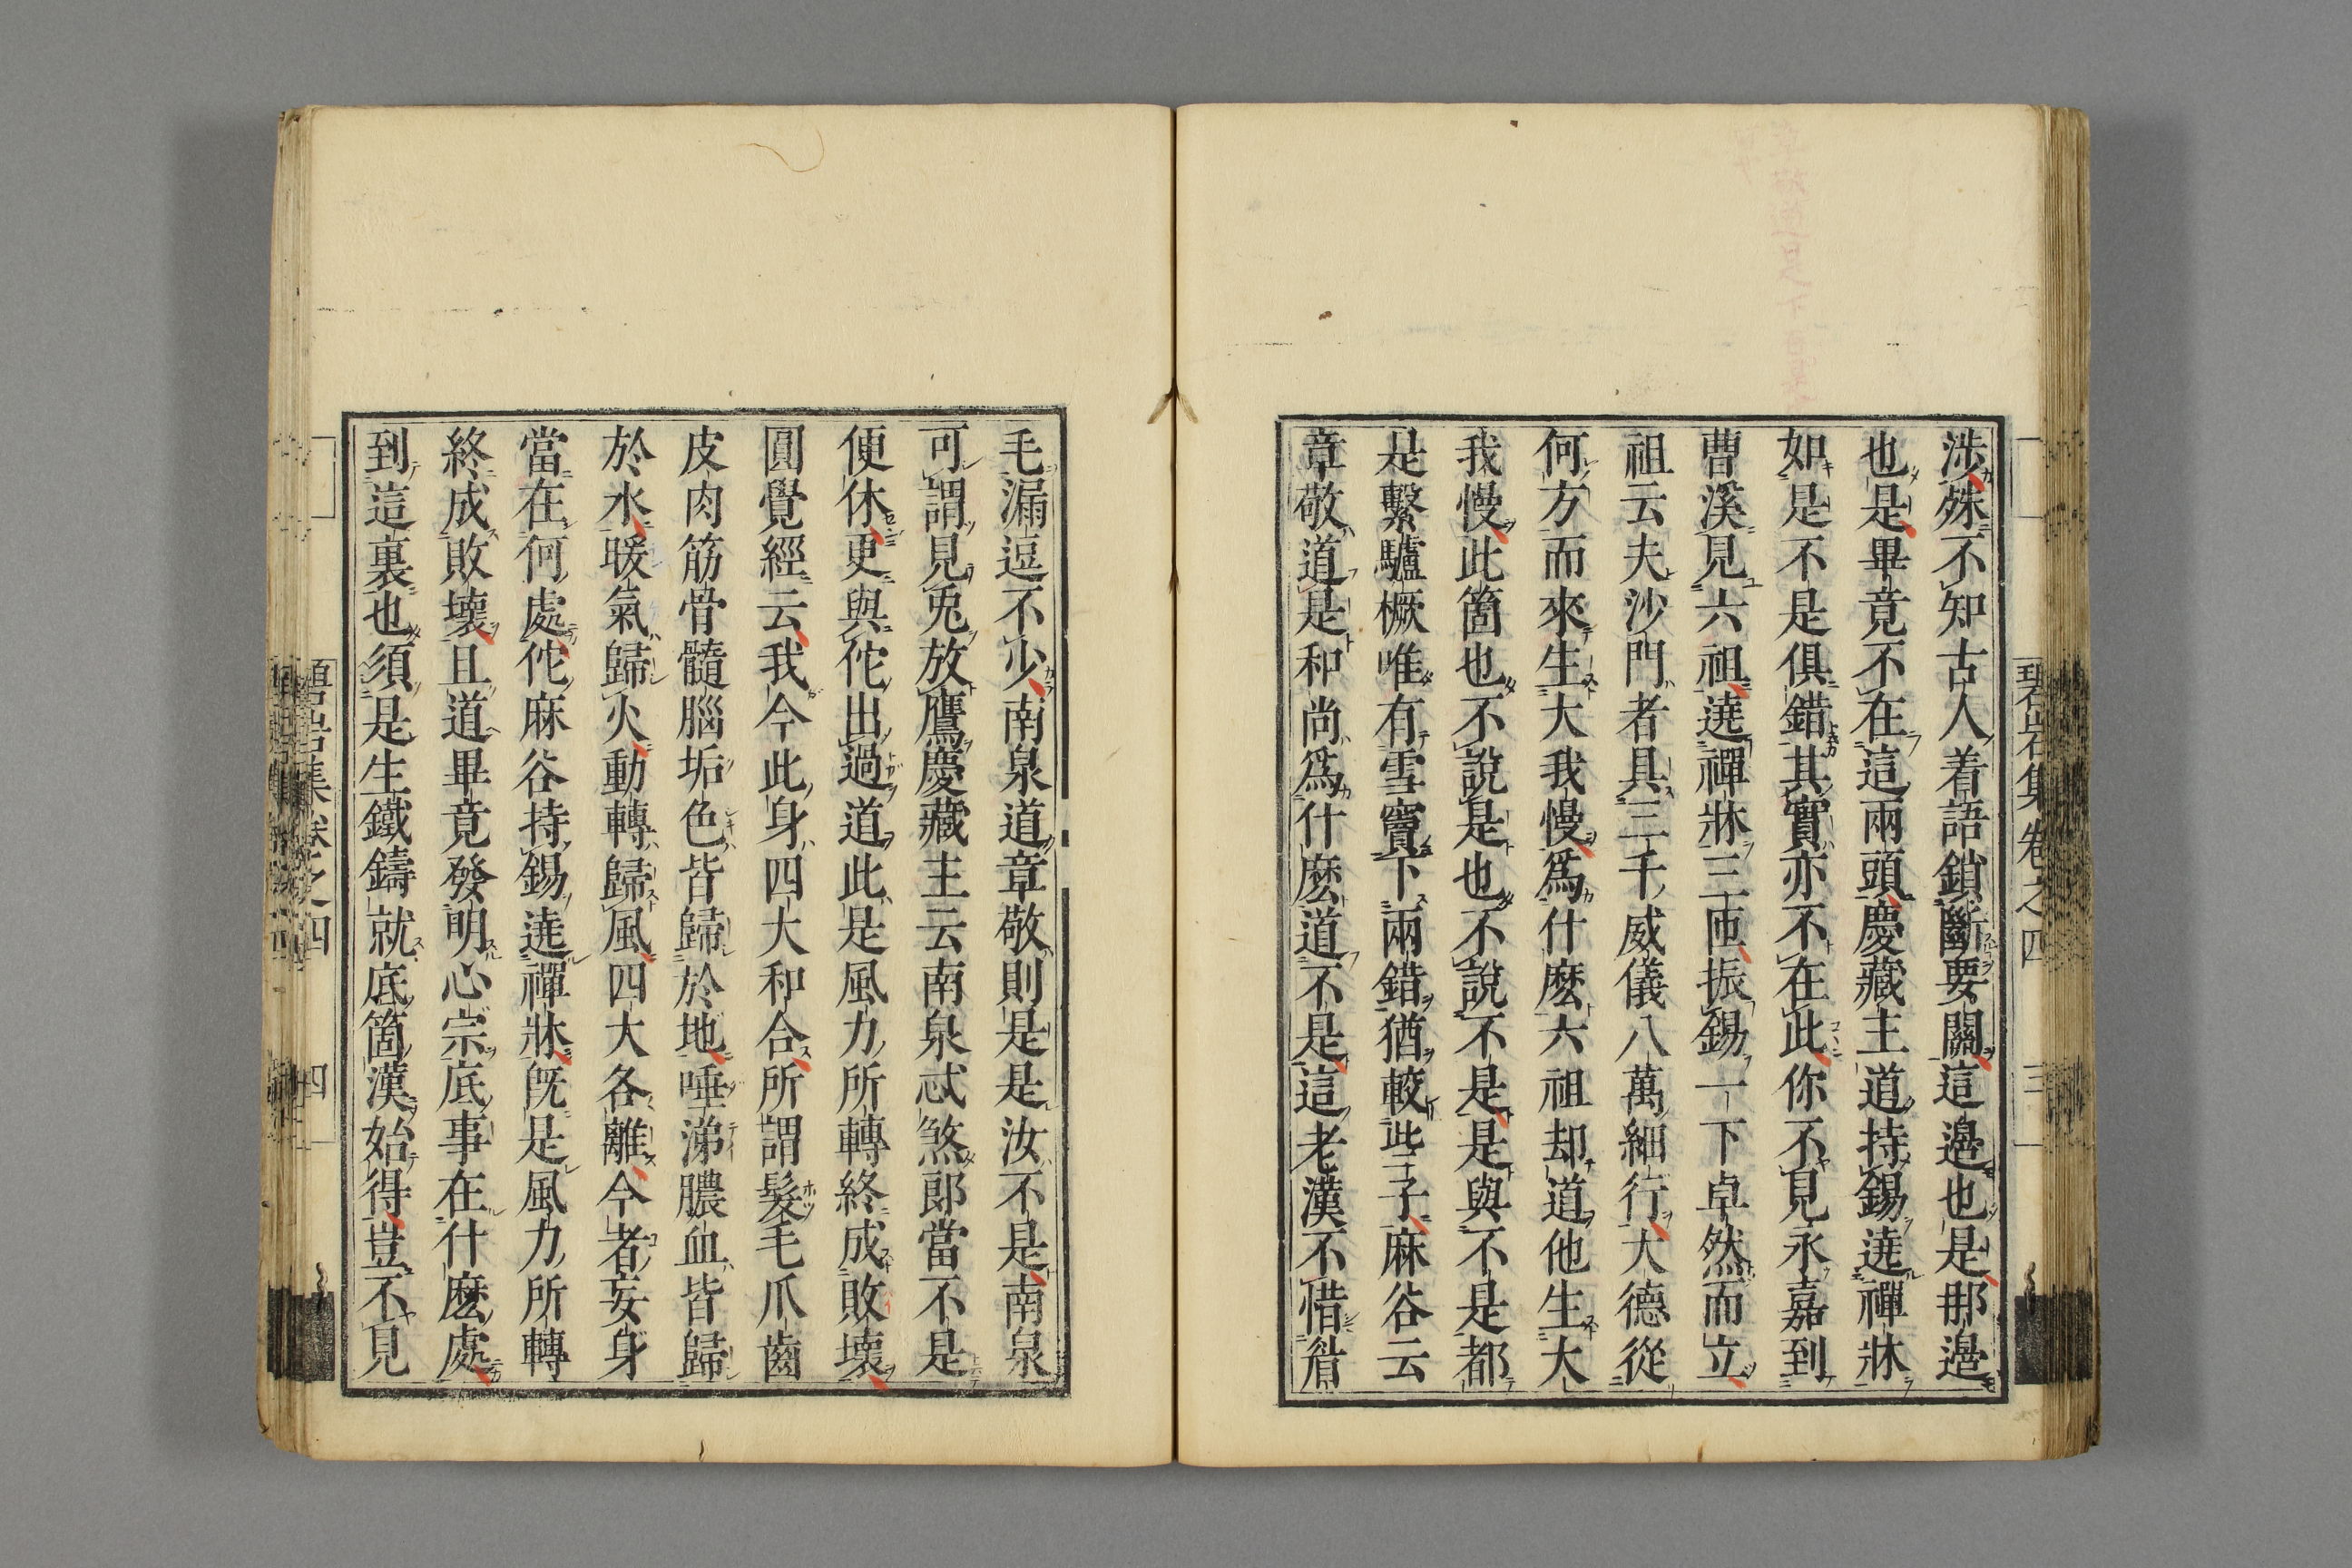 涉殊不知古人着語鎖斷要關這邊也是那邊
也是畢竟不在這兩頭慶藏主道持錫遶禪牀
如是不是俱錯其實亦不在此你不見永嘉到
曹溪見六祖遶禪牀三匝振錫一下卓然而立
祖云夫沙門者具三千威儀八萬細行大德從
何方而來生大我慢爲什麽六祖却道他生大
我慢此箇也不說是也不說不是是與不是都
是繫驢橛唯有雪竇下兩錯猶較些子麻谷云
章敬道是和尚爲什麽道不是這老漢不惜眉
碧岩集卷之四
三
毛漏逗不少南泉道章敬則是是汝不是南泉
可謂見兎放鷹慶藏主云南泉忒煞郎當不是
便休更與佗出過道此是風力所轉終成敗壞
圓覺經云我今此身四大和合所謂髮毛爪齒
皮肉筋骨髓腦垢色皆歸於地唾涕膿血皆歸
於水暖氣歸火動轉歸風四大各離今者妄身
當在何處佗麻谷持錫遶禪牀旣是風力所轉
終成敗壞且道畢竟發明心宗底事在什麽處
到這裏也須是生鐵鑄就底箇漢始得豈不見
碧岩集卷之四
四